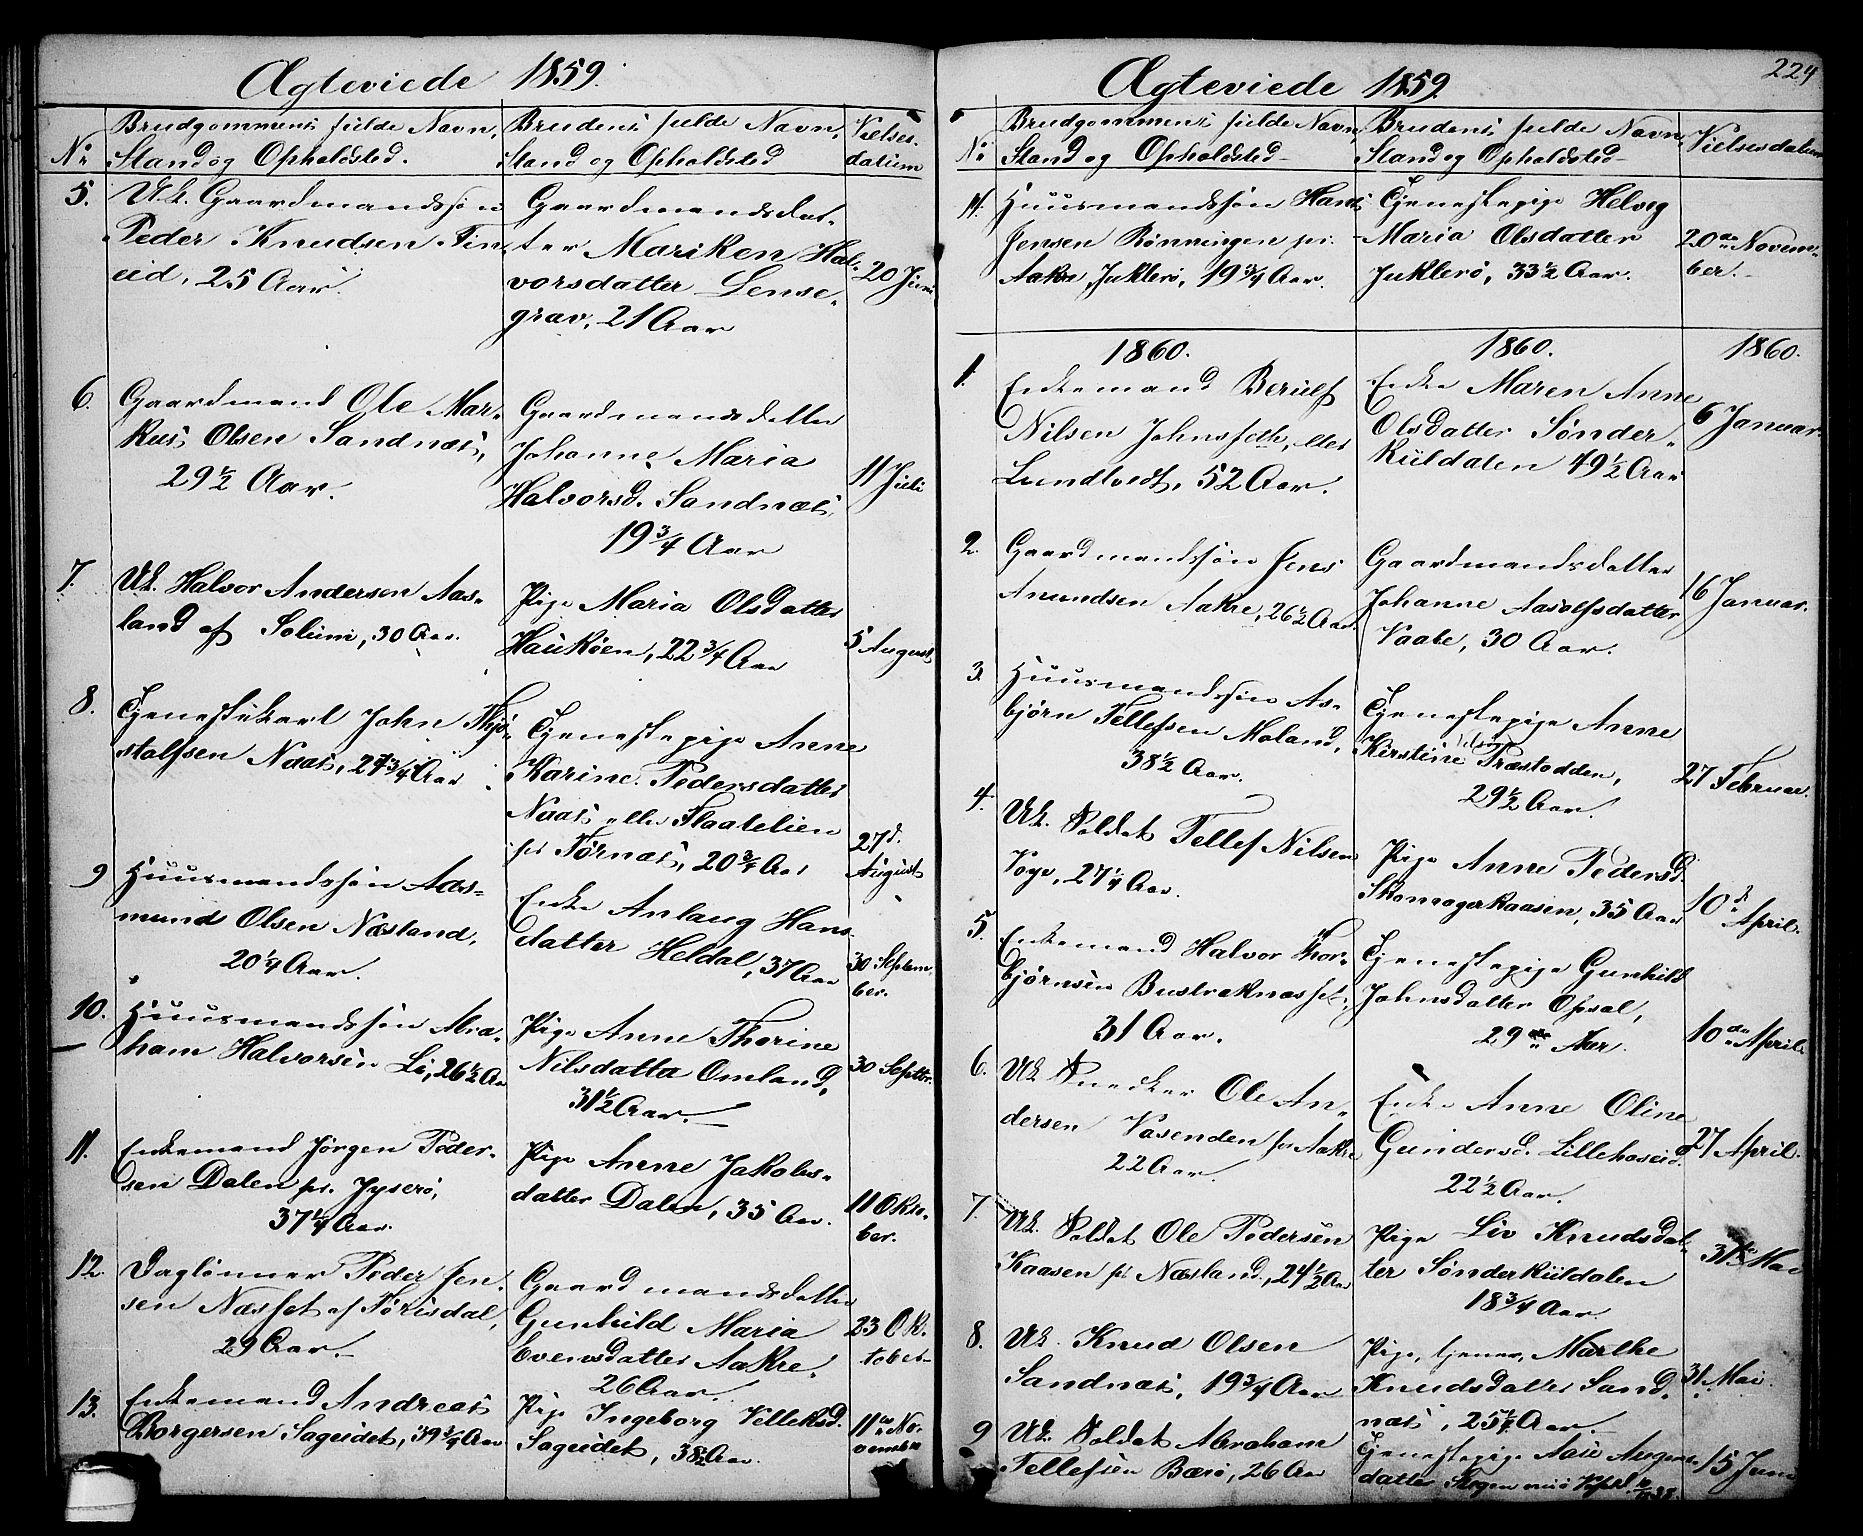 Ægteviede 1859.
No
Brudgommens fulde Navn,
Stand og Opholdsted.
Brudens fulde Navn,
Stand og Opholdsted
Vielses-
datum
5.
Uk. Gaardmandssøn
Peder Knudsen Fin
eid, 25 Aar.
Gaardmandsdat-
ter Mariken Hal-
vorsdatter Lense-
grav, 21 Aar
20 Juni
6.
Gaardmand Ole Mar-
kus Olsen Sandnæs,
29 1/2 Aar.
Gaardmandsdatter
Johanne Maria
Halvorsd. Sandnæs,
19 3/4 Aar
11 Juli
7.
Uk. Halvor Andersen Aas-
land af Solum, 30 Aar.
Pige Maria Olsdatter
Haukøen, 22 3/4 Aar
5 August
8.
Tjenestekarl John Thjo-
stolfsen Naas, 27 3/4 Aar
Tjenestepige Anne
Karine Pedersdatter
Naas eller Flaatelien
pr Tørnæs, 20 3/4 Aar
27d.
August
9
Huusmandssøn Aas-
mund Olsen Næsland,
20 1/4 Aar.
Enke Anlaug Hans-
datter Heldal, 37 Aar
30 Septem-
ber.
10.
Huusmandssøn Abra-
ham Halvorsen Li, 26 1/2 Aar
Pige Anne Thorine
Nilsdatter Omland,
31 1/2 Aar.
30 Septbr.
11.
Enkemand Jørgen Peder-
sen Dalen pr. Jyserø,
37 1/4 Aar.
Pige Anne Jakobs-
datter Dalen, 35 Aar.
11 Okto-
ber.
12.
Daglønner Peder Jen-
sen Næsset af Tørisdal,
29 Aar.
Gaardmandsdatter
Gunhild Maria
Evensdatter Aakre.
26 Aar.
23 Ok-
tober
13.
Enkemand Andreas
Borgersen Sageidet, 39 3/4 Aar
Pige Ingeborg Velleksd.
Sageidet, 38 1/2 Aar.
11te No-
vember
224
Ægteviede 1859.
No
Brudgommens fulde Navn,
Stand og Opholdsted
Brudens fulde Navn,
Stand og Opholdsted
Vielsesdatum
14.
Huusmandssøn Hans
Jensen Rønningen pr.
Aakre, Juklerø, 19 3/4 Aar.
Tjenestepige Helvig
Maria Olsdatter
Juklerø, 33 1/2 Aar.
20de Novem-
ber.
1860.
1860.
1860.
1.
Enkemand Berulf
Nilsen Johnsseth, eller
Lundtvedt, 52 Aar.
Enke Maren Anne
Olsdatter Sønder-
kiildalen 49 1/2 Aar
6 Januar.
2.
Gaardmandssøn Jens
Amundsen Aakre, 26 1/2 Aar.
Gaardmandsdatter
Johanne Aasolfsdatter
Vaale, 30 Aar.
16 Januar.
3.
Huusmandssøn As-
bjørn Tellefsen Moland,
38 1/2 Aar.
Tjenestepige Anne
Kirstine Præstodden,
29 1/2 Aar.
27 Februar.
4.
Uk. Soldat Tellef Nilsen
Voge, 27 1/4 Aar.
Pige Anne Pedersd.
Skomagerkaasen, 35 Aar
10d
April.
5.
Enkemand Halvor Thor-
bjørnsen Bustraknæsset,
31 Aar.
Tjenestepige Gunhild
Johnsdatter Opsal,
29 Aar.
10de April.
6.
Uk Snedker Ole An-
dersen Vasenden pr Aakre
22 Aar.
Enke Anne Oline
Gundersd. Lillehoseid.
22 1/2 Aar.
27 April.
7.
Uk. Soldat Ole Pedersen
Kaasen pr Næsland, 24 1/2 Aar
Pige Liv Knudsdat-
ter Sønderkiildalen
18 3/4 Aar.
31te Mai
8.
Uk. Knud Olsen
Sandnæs, 19 3/4 Aar
Pige, tjener, Marthe
Knudsdatter Sand-
næs, 25 1/4 Aar.
31 Mai.
9
Uk. Soldat Abraham
Tellefsen Barø, 26 Aar
Tjenestepige Aase
datter
15 Juni